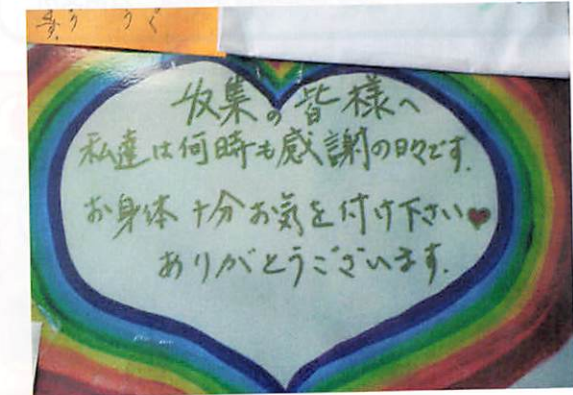 収集の皆様へ
私達は何時も感謝の日々です.
お身体十分お気を付け下さい♥
ありがとうございます.